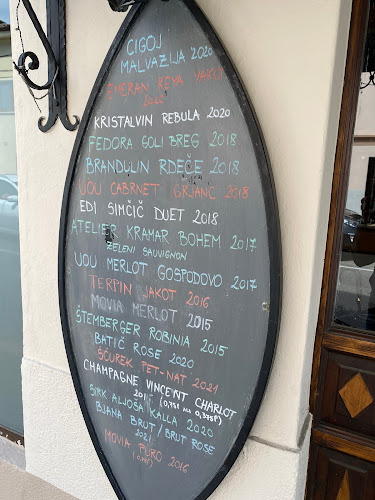 CIGOJ
MALVAZIJA 2020
ŠTEMRAN REYA JAKOT
2020
KRISTALVIN REBULA 2020
FEDORA GOLI BREG 2018
BRANDULIN RDEČE 2018
UOU CABRNET GRJANC 2018
EDI SIMČIČ DUET 2018
ATELIER KRAMAR BOHEM 2017
ZELENI SAUVIGNON
UOU MERLOT GOSPODOVO 2017
TERPIN JAKOT 2016
MOVIA MERLOT 2015
ŠTEMBERGER ROBINIA 2015
BATIČ ROSE 2020
ŠČUREK PET-NAT 2021
CHAMPAGNE VINCENT CHARLOT
2015 (0,75l na 0,375l)
SIRK ALJOŠA KALLA 2020
BJANA BRUT/BRUT ROSE
2021
MOVIA PURO 2016
(0,75l)